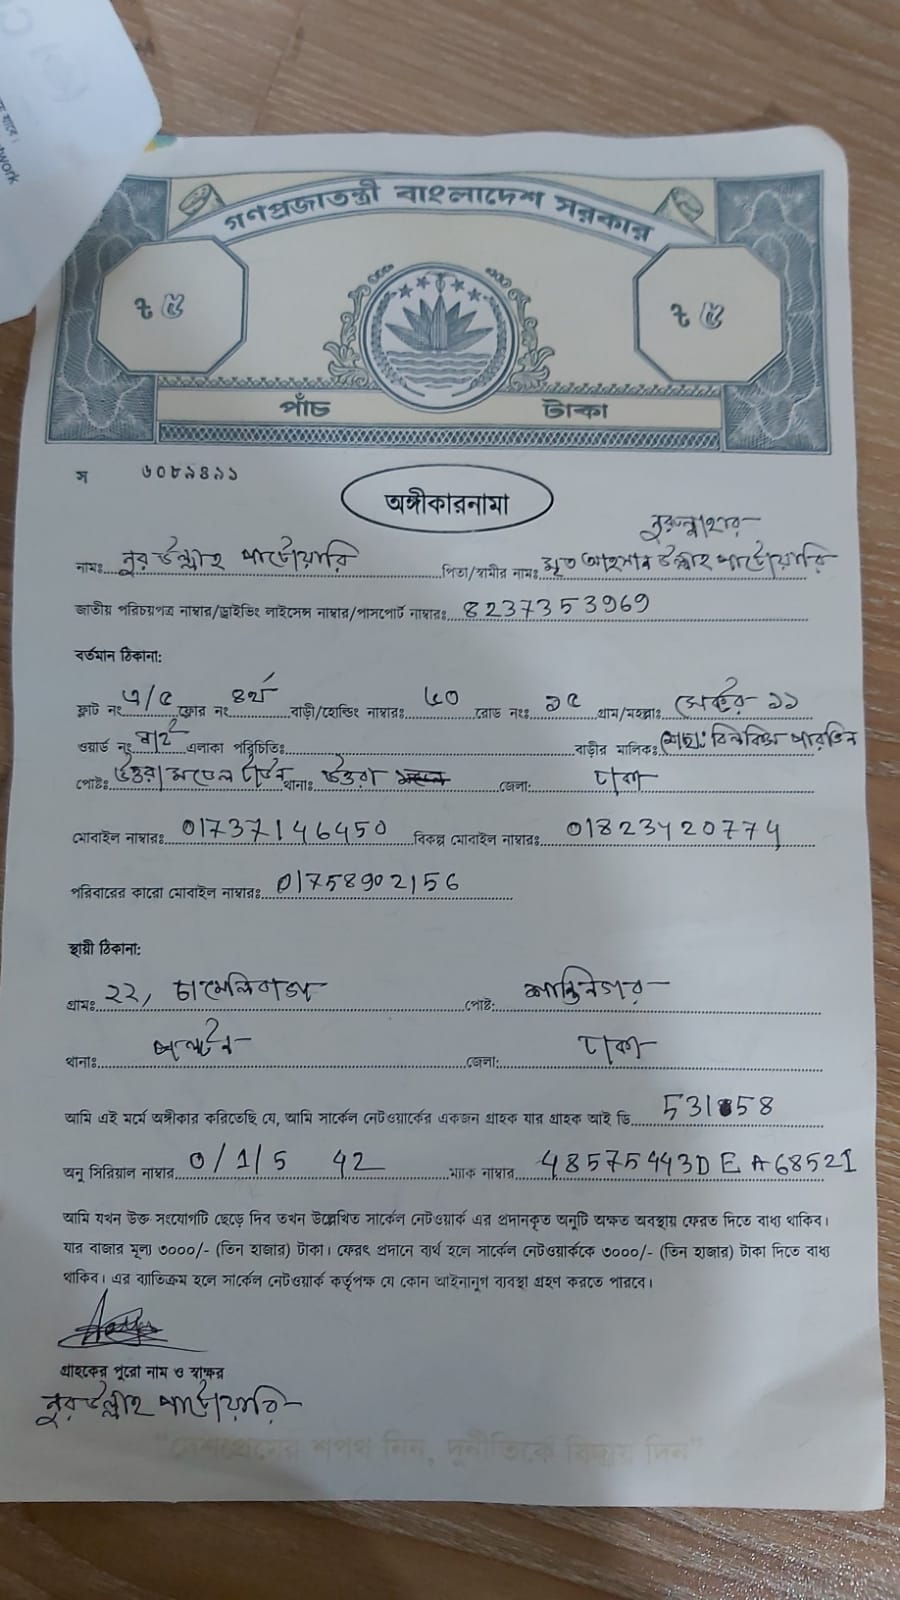 গণপ্রজাতন্ত্রী বাংলাদেশ সরকার
৳ ৫ ৳ ৫
পাঁচ টাকা
স ৬০৮৯৪৯১
অঙ্গীকারনামা
নুরুন্নাহার
নামঃ নুর উল্লাহ পাটোয়ারি পিতা/স্বামীর নামঃ মৃত আহসান উল্লাহ পাটোয়ারি
জাতীয় পরিচয়পত্র নাম্বার/ড্রাইভিং লাইসেন্স নাম্বার/পাসপোর্ট নাম্বারঃ 8237353969
বর্তমান ঠিকানা:
ফ্লাট নং এ/৫ ফ্লোর নং ৪র্থ বাড়ী/হোল্ডিং নাম্বারঃ ৬০ রোড নংঃ ১৫ গ্রাম/মহল্লাঃ সেক্টর ১১
ওয়ার্ড নং এলাকা পরিচিতিঃ বাড়ীর মালিকঃ মোছাঃ বিলকিস পারভিন
পোষ্টঃ উত্তরা মডেল টাউন থানাঃ উত্তরা জেলা: ঢাকা
মোবাইল নাম্বারঃ 01737146450 বিকল্প মোবাইল নাম্বারঃ 01823420774
পরিবারের কারো মোবাইল নাম্বারঃ 01758902156
স্থায়ী ঠিকানা:
গ্রামঃ ২২, চামেলিবাগ পোষ্ট: শান্তিনগর
থানাঃ পল্টন জেলা: ঢাকা
আমি এই মর্মে অঙ্গীকার করিতেছি যে, আমি সার্কেল নেটওয়ার্কের একজন গ্রাহক যার গ্রাহক আই ডি 531858
অনু সিরিয়াল নাম্বার 0/1/5 42 ম্যাক নাম্বার 48575443DEA68521
আমি যখন উক্ত সংযোগটি ছেড়ে দিব তখন উল্লেখিত সার্কেল নেটওয়ার্ক এর প্রদানকৃত অনুটি অক্ষত অবস্থায় ফেরত দিতে বাধ্য থাকিব।
যার বাজার মূল্য ৩০০০/- (তিন হাজার) টাকা। ফেরৎ প্রদানে ব্যর্থ হলে সার্কেল নেটওয়ার্ককে ৩০০০/- (তিন হাজার) টাকা দিতে বাধ্য
থাকিব। এর ব্যাতিক্রম হলে সার্কেল নেটওয়ার্ক কর্তৃপক্ষ যে কোন আইনানুগ ব্যবস্থা গ্রহণ করতে পারবে।
গ্রাহকের পুরো নাম ও স্বাক্ষর
নুর উল্লাহ পাটোয়ারি
"দেশপ্রেমের শপথ নিন, দুর্নীতিকে বিদায় দিন"